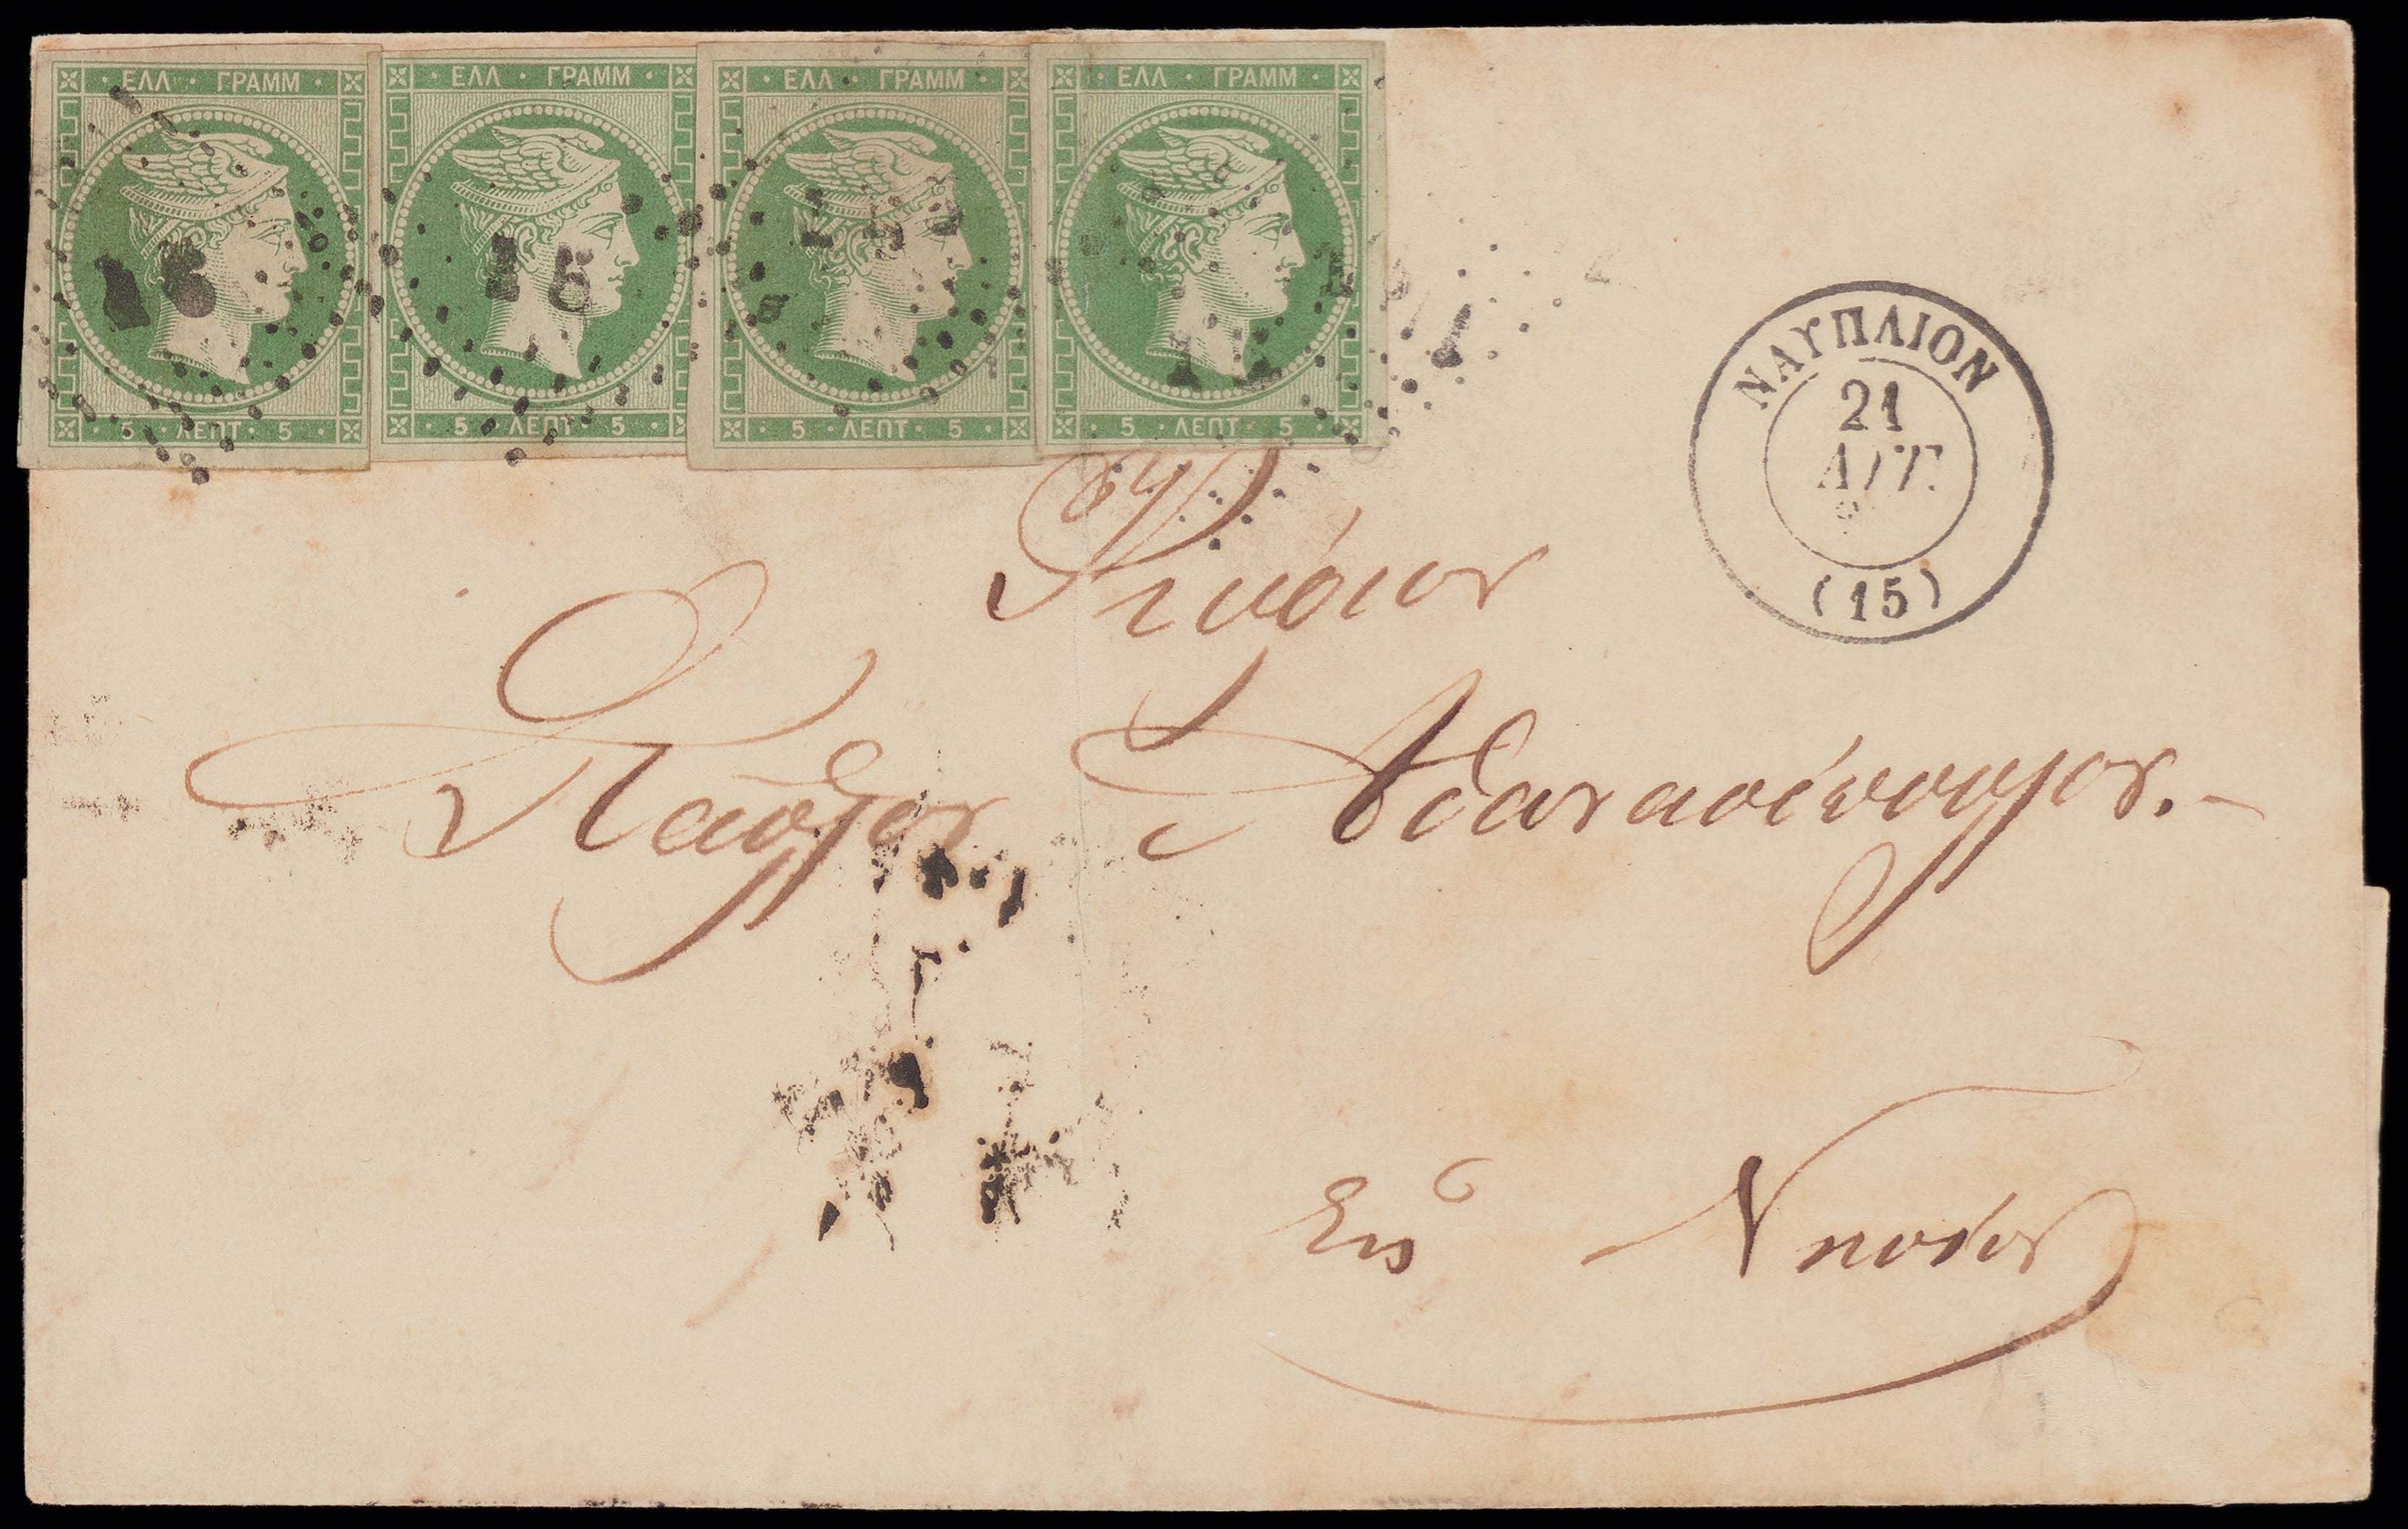 ΕΛΛ · ΓΡΑΜΜ ·
· 5 · ΛΕΠΤ · 5 ·
ΕΛΛ · ΓΡΑΜΜ ·
· 5 · ΛΕΠΤ · 5 ·
ΕΛΛ · ΓΡΑΜΜ ·
· 5 · ΛΕΠΤ · 5 ·
ΕΛΛ · ΓΡΑΜΜ ·
· 5 · ΛΕΠΤ · 5 ·
15
ΝΑΥΠΛΙΟΝ
21
ΑΥΓ.
(15)
Κύριον
Παῦλον Ἀθανασόπουλον.
Εἰς